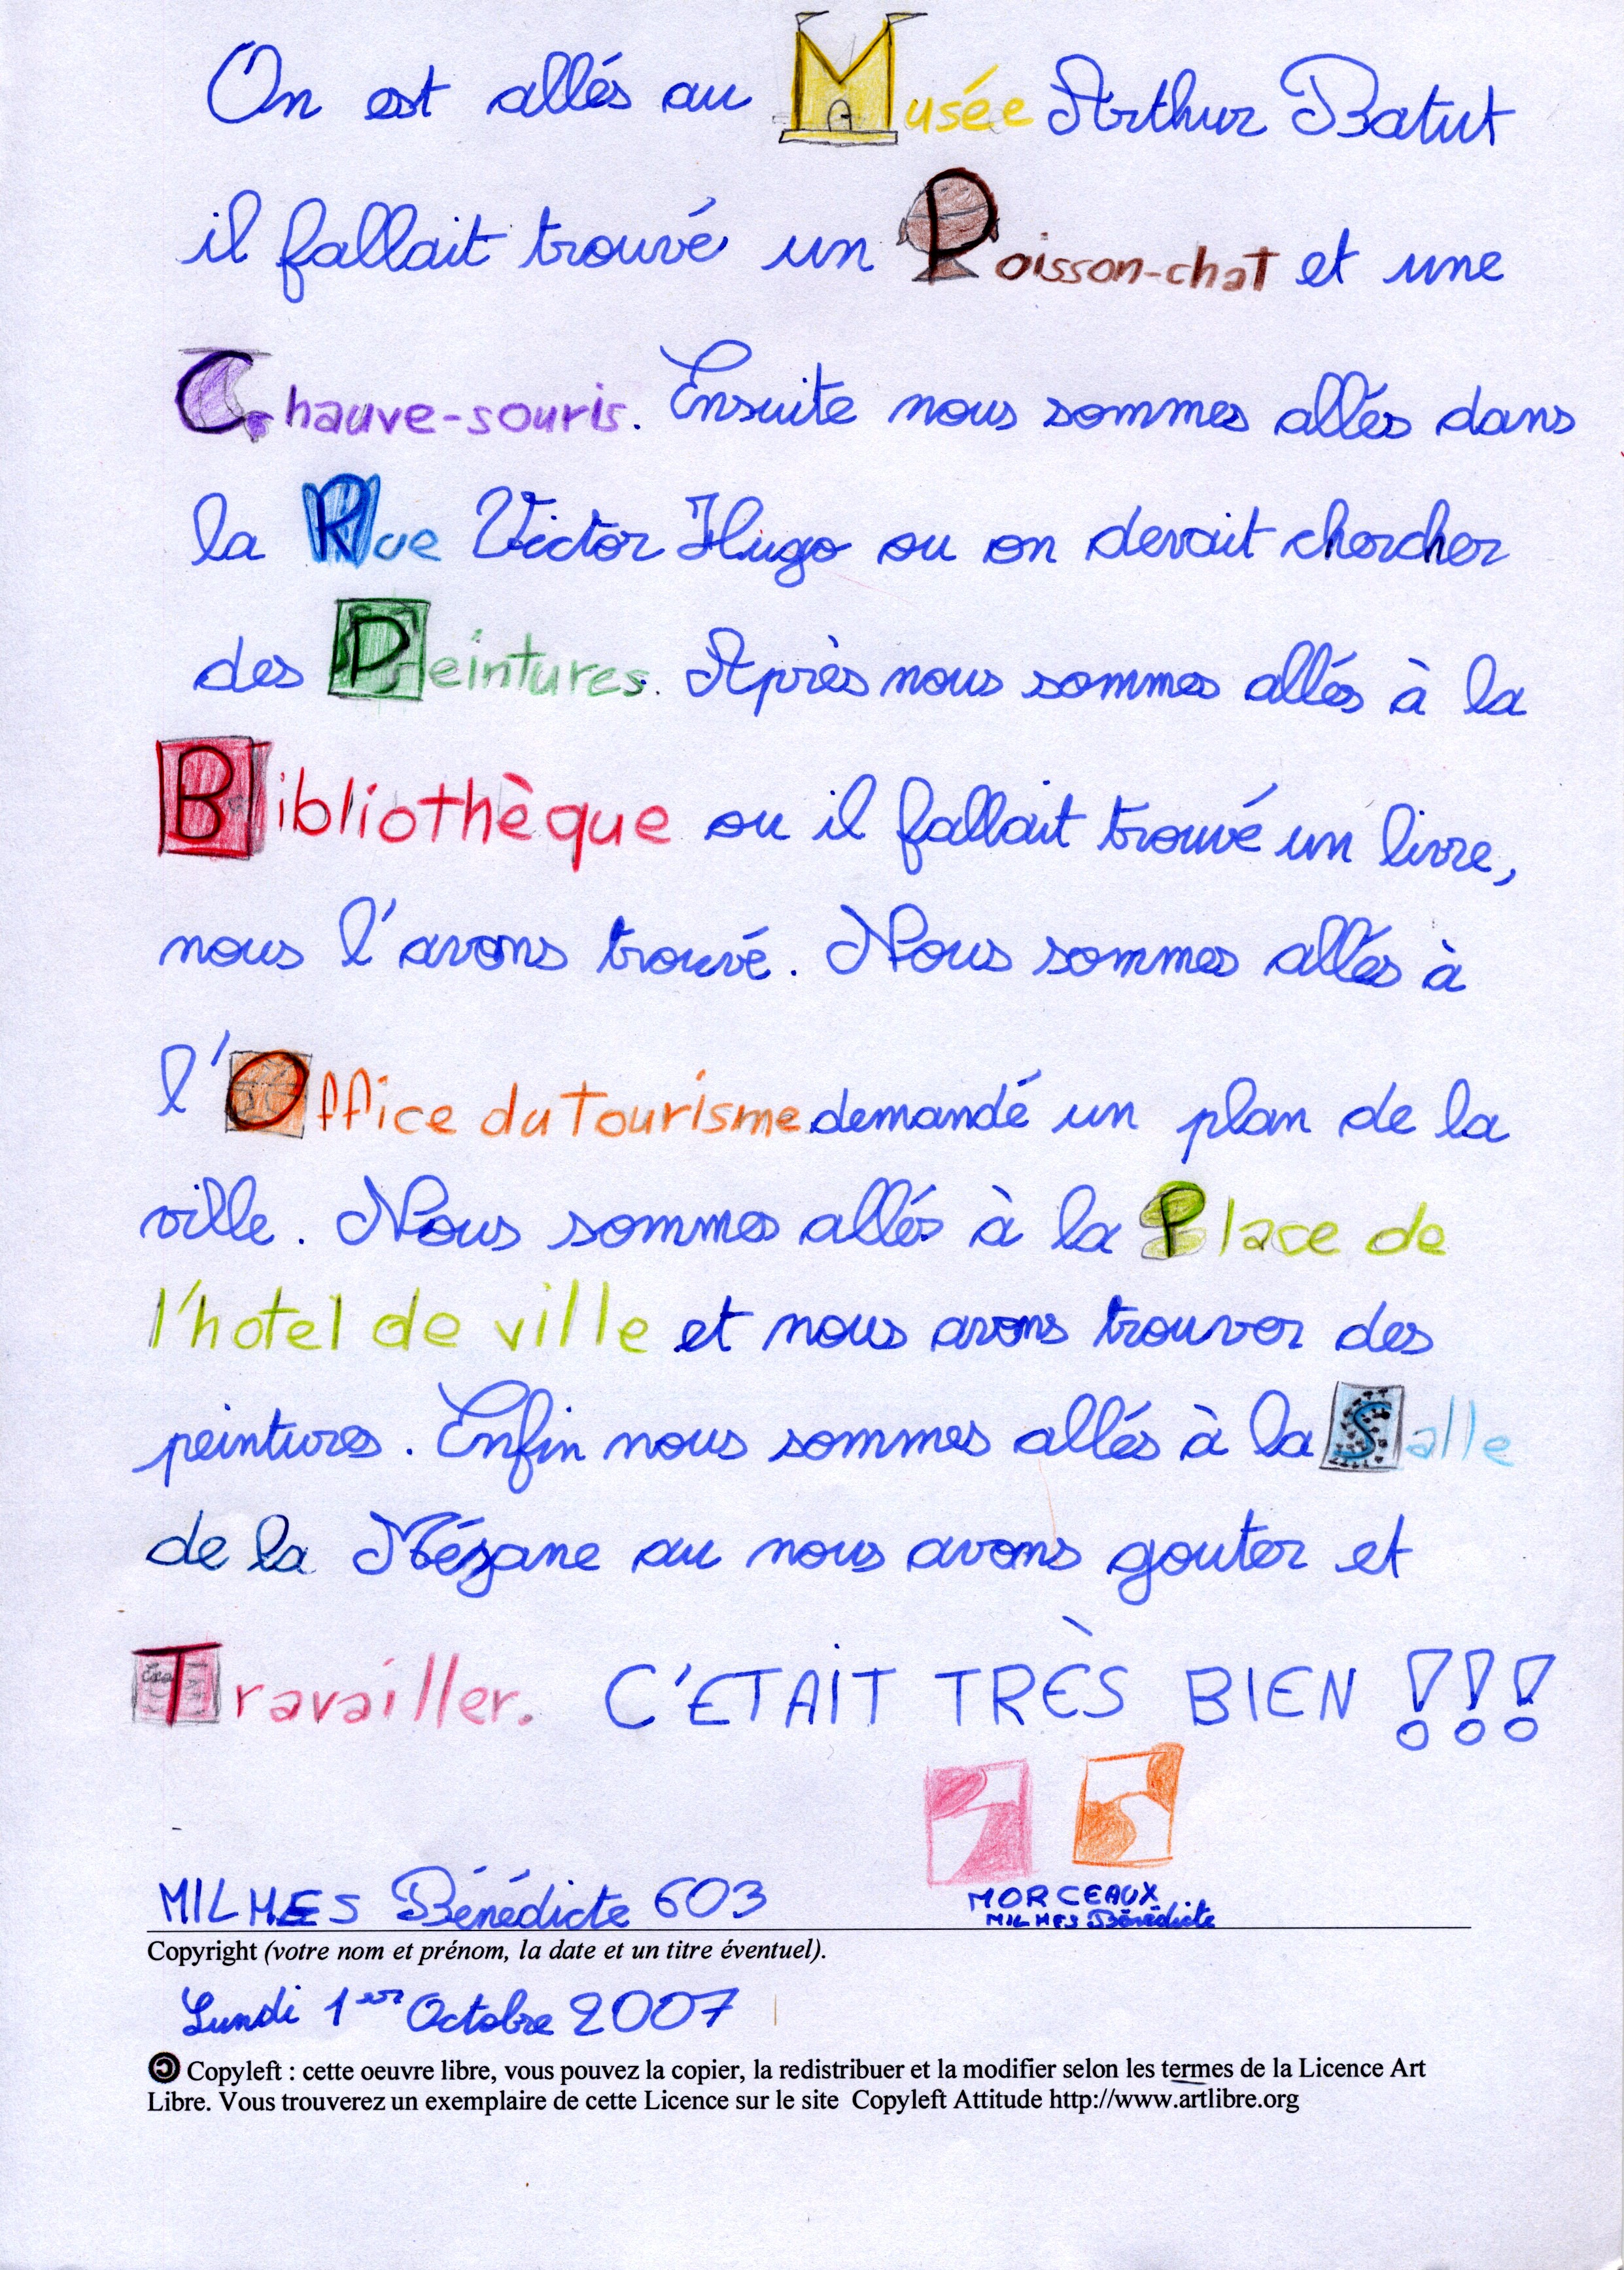 On est allés au Musée Arthur Batut
il fallait trouvé un Poisson-chat et une
Chauve-souris. Ensuite nous sommes allés dans
la Rue Victor Hugo ou on devait chercher
des Peintures. Après nous sommes allés à la
Bibliothèque ou il fallait trouvé un livre,
nous l'avons trouvé. Nous sommes allés à
l'Office du Tourisme demandé un plan de la
ville. Nous sommes allés à la Place de
l'hotel de ville et nous avons trouver des
peintures. Enfin nous sommes allés à la Salle
de la Mézane au nous avons gouter et
Travailler. C'ETAIT TRÈS BIEN !!!
MILHES Bénédicte 603
MORCEAUX
MILHES Bénédicte
Copyright (votre nom et prénom, la date et un titre éventuel).
Lundi 1er Octobre 2007
Copyleft : cette oeuvre libre, vous pouvez la copier, la redistribuer et la modifier selon les termes de la Licence Art
Libre. Vous trouverez un exemplaire de cette Licence sur le site Copyleft Attitude http://www.artlibre.org